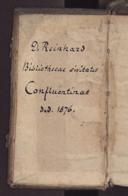 D. Reinhard
Bibliothecae civitatis
Confluentinae
d.d. 1876.